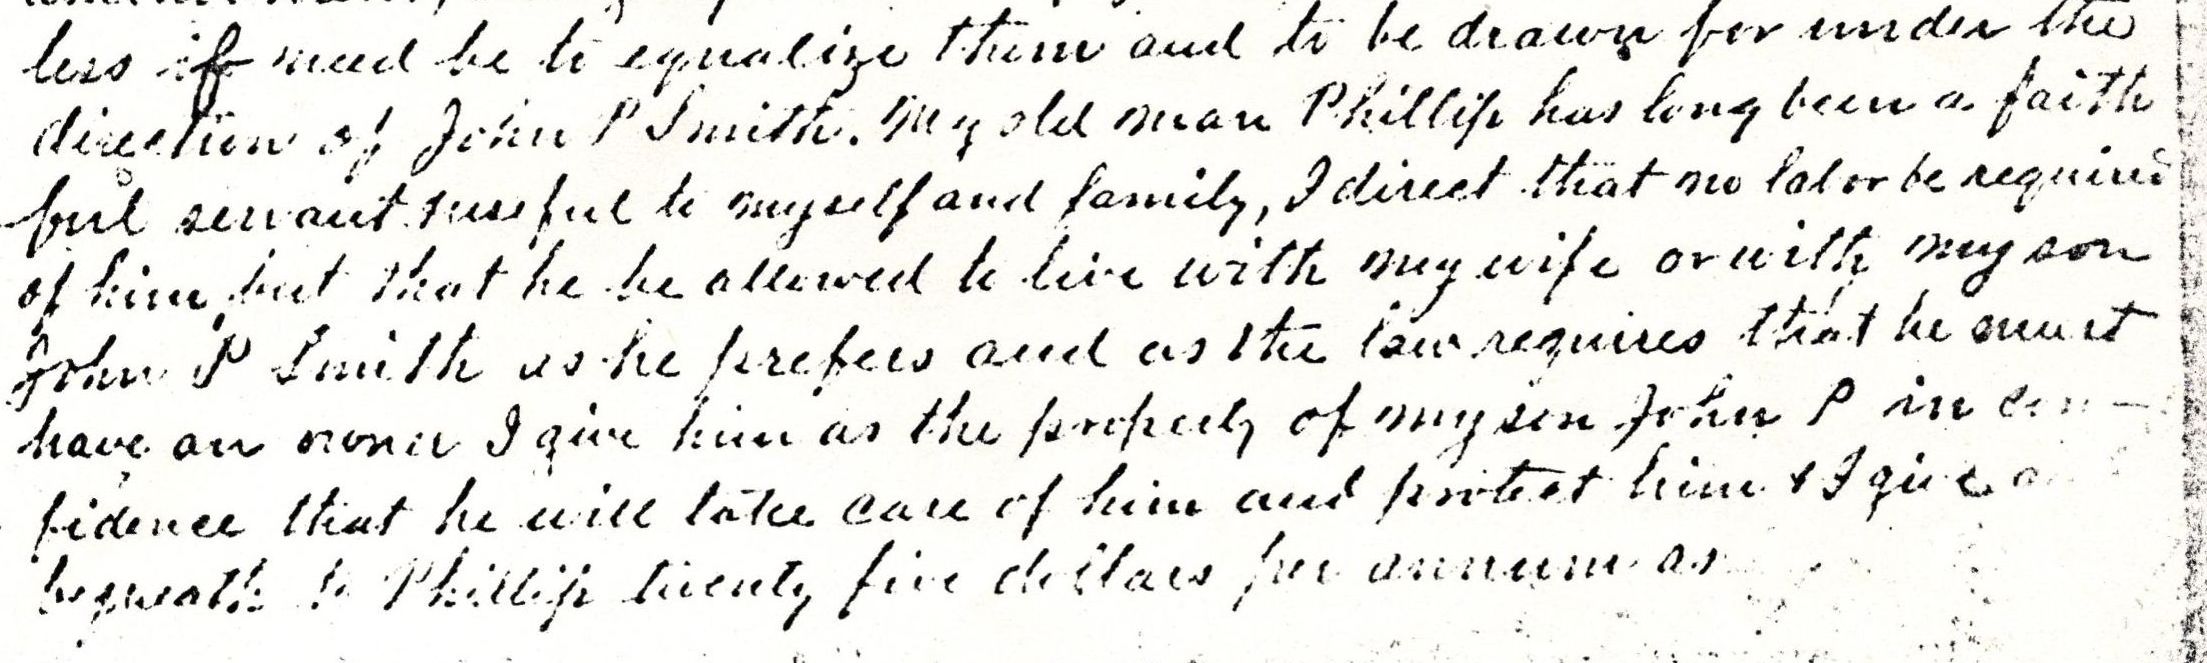 less if need be to equalize them and to be drawn for under the
direction of John P Smith. My old man Phillip has long been a faith
ful servant useful to myself and family, I direct that no labor be required
of him, but that he be allowed to live with my wife or with my son
John P Smith as he prefers and as the law requires that he must
have an owner I give him as the property of my son John P in con-
fidence that he will take care of him and protect him & I give
bequeath to Phillip twenty five dollars per annum as